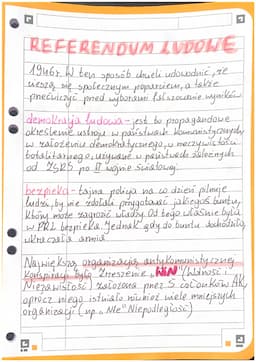 REFERENDUM LUDOWE
1946r. W ten sposób chcieli udowodnić, że
cieszą się społecznym poparciem, a także
przećwiczyć przed wyborami fałszowanie wyników
demokracja ludowa - jest to propagandowe
określenie ustroju w państwach komunistycznych
w założeniu demokratycznego, w rzeczywistości
totalitarnego, używane w państwach zależnych
od ZSRS po II wojnie światowej.
bezpieka - tajna policja na co dzień pilnuje
ludzi, by nie zdołali przygotować jakiegoś buntu,
który może zagrozić władzy. Od tego właśnie była
w PRL bezpieka. Jednak gdy do buntu dochodziło,
wkraczała armia
Największą organizacją antykomunistycznej
konspiracji było Zrzeszenie „WiN" (Wolność i
Niezawisłość) założona przez 5 członków AK,
oprócz niego istniało również wiele mniejszych
organizacji (np. „Nie" Niepodległość)